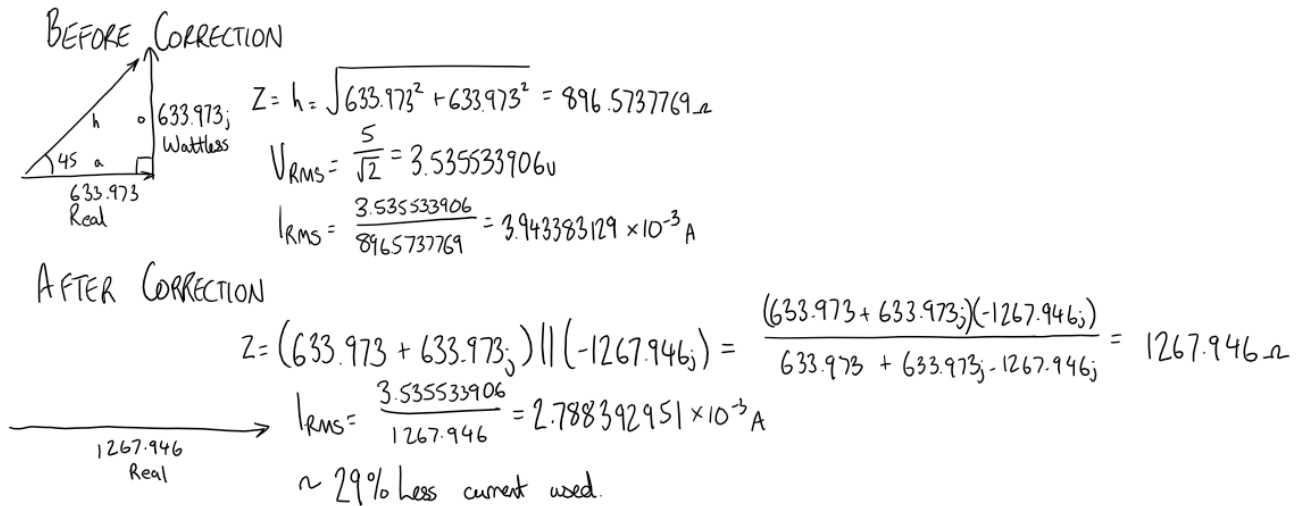 BEFORE CORRECTION
h
o
633.973j
Wattless
45
a
633.973
Real
Z = h = √(633.973² + 633.973²) = 896.5737769Ω
V_RMS = 5/√2 = 3.535533906v
I_RMS = 3.535533906/8965737769 = 3.943383129 × 10⁻³ A
AFTER CORRECTION
Z = (633.973 + 633.973j) || (-1267.946j) = (633.973 + 633.973j)(-1267.946j)/633.973 + 633.973j - 1267.946j = 1267.946Ω
I_RMS = 3.535533906/1267.946 = 2.788392951 × 10⁻³ A
1267.946
Real
~ 29% Less current used.